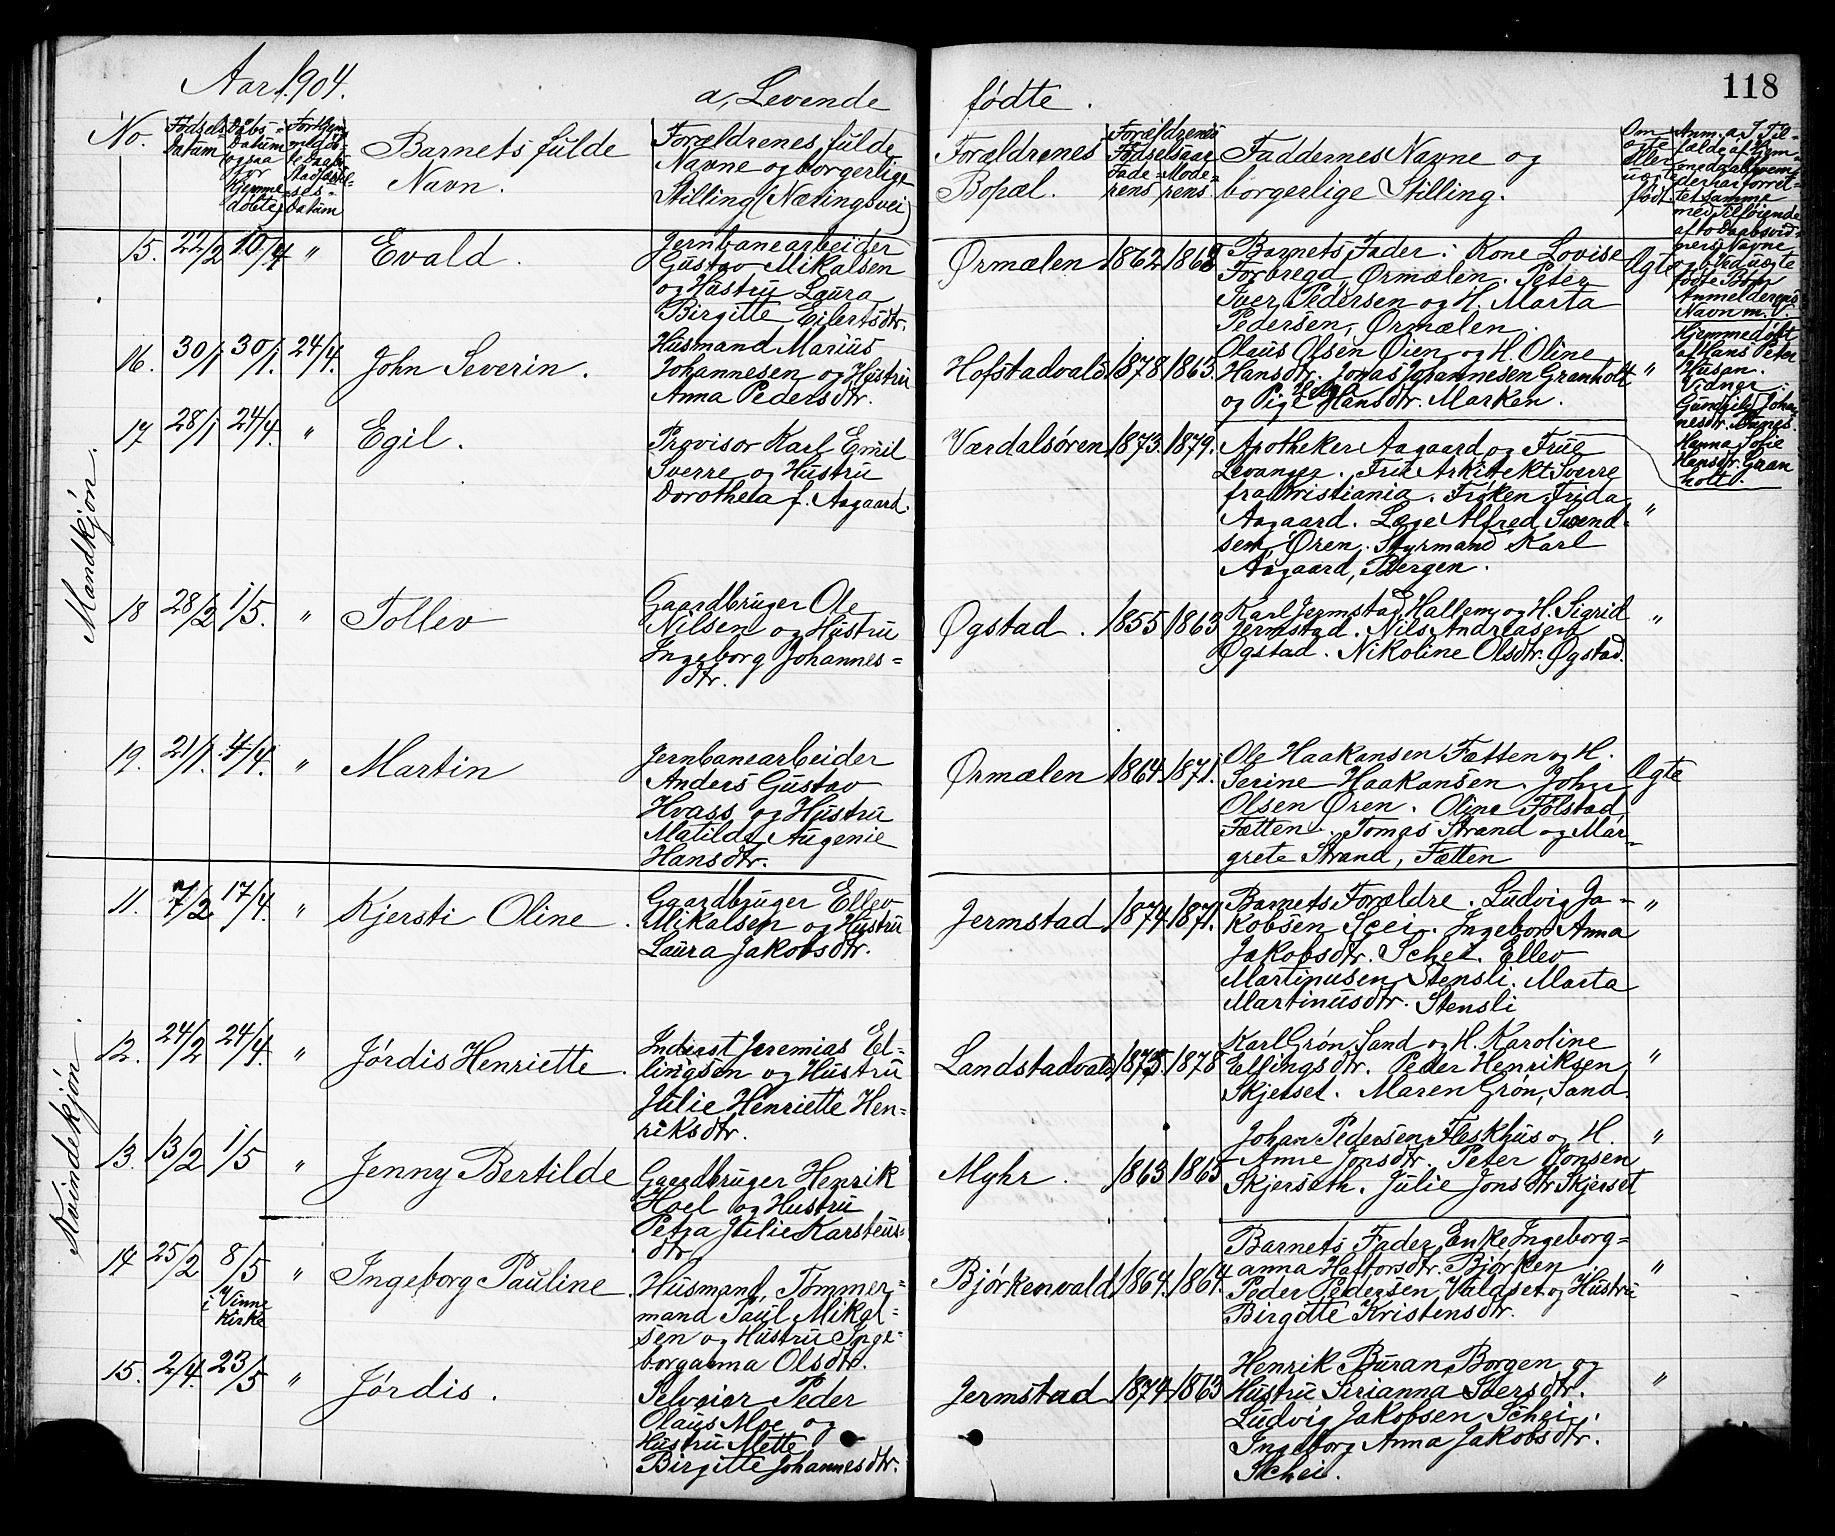 118
Aar 1904.
a, Levende fødte.
No.
Fødsels Datum
Daabs-Datum ogsaa for Hjemmedøbte
Datum
Barnets fulde
Navn.
Forældrenes fulde
Navne og borgerlige
Stilling (Næringsvei)
Forældrenes
Bopæl.
Forældrenes
Fødselsaar
Fade- Mode-
rens rens
Faddernes Navne og
borgerlige Stilling.
Om
ægte
eller
uægte
født.
Mandkjøn.
15. 22/2 10/4 " Evald.
Jernbanearbeider
Gustav Mikalsen
og Hustru Laura
Birgitte Eilertsdtr.
Ørmælen 1862 1862
Barnets Fader: Kone Lovise
Forbregd, Ørmælen. Peter
Iver Pedersen og H. Marta
Pedersen, Ørmælen.
Ægte
16. 30/1 30/1. 24/4. John Severin.
Husmand Marius
Johannesen og Hustru
Anna Pedersdtr.
Hofstadvald 1878 1865.
Olaus Olsen Øien og H. Oline
Hansdtr. Jonas Johannesen Granholt
og Pige Hansdtr. Marken.
"
Hjemmedøbt
af Hans Peter
Husan.
Vidner:
Hanna Sofie
Hansdr. Gran
holt.
17 28/1 24/4. " Egil.
Provisor Karl Emil
Sverre og Hustru
Dorothea f. Aagaard.
Værdalsøren 1873. 1879.
Apotheker Aagaard og Frue
Levanger. Frue Arkitekt Sverre
fra Kristiania. Frøken Frida
Aagaard. Læge Alfred Svend-
sen, Øren. Styrmand Karl
Aagaard, Bergen.
"
18 28/2 1/5. " Tollev
Gaardbruger Ole
Nilsen og Hustru
Ingeborg Johannes-
dtr.
Øgstad. 1855 1863
Karl Jermstad, Hallem og H. Sigrid
Jermstad. Nils Andreasen
Øgstad. Nikoline Olsdtr. Øgstad.
"
19. 21/1. 4/4. " Martin
Jernbanearbeider
Anders Gustav
Hvass og Hustru
Matilde Augenie
Hansdtr.
Ørmælen 1864. 1871.
Ole Haakansen Fætten og H.
Serine Haakansen. Johan
Olsen Øren. Oline Folstad,
Fætten. Tomas Strand og Mar-
grete Strand, Fætten
Ægte
Kvindekjøn.
11. 7/2 17/4. " Kjersti Oline.
Gaardbruger Ellev
Mikalsen og Hustru
Laura Jakobsdtr.
Jermstad 1874 1871.
Barnets Forældre. Ludvig Ja-
kobsen Scei. Ingebor Anna
Jakobsdtr. Schei. Ellev
Martinusen Stensli. Marta
Martinusdtr. Stensli
"
12. 24/2 24/4. " Jørdis Henriette.
Inderst Jeremias El-
lingsen og Hustru
Julie Henriette Hen-
riksdtr.
Landstadvald 1875. 1878
Karl Grøn, Sand og H. Karoline
Ellingsdtr. Peder Henriksen
Skjerset. Maren Grøn, Sand.
"
13. 13/2 1/5 " Jenny Bertilde
Gaardbruger Henrik
Hoel og Hustru
Petra Julie Karsteus-
dtr
Myhr. 1863 1865
Johan Pedersen Fleskhus og H.
Anne Jonsdtr. Peter Jonsen
Skjerseth. Julie Jonsdtr Skjerset
"
14 25/2 8/5 i Vinne Kirke " Ingeborg Pauline.
Husmand, Tømmer-
mand Paul Mikal-
sen og Hustru Inge-
borganna Olsdtr.
Bjørkenvald 1864. 1864.
Barnets Fader, Enke Ingeborg-
anna Haftorsdtr. Bjørken
Peder Pedersen, Valdset og Hustru
Birgitte Kristensdtr.
"
15. 2/4. 23/5 " Jørdis.
Selveier Peder
Olaus Moe og
Hustru Mette
Birgitte Johannesdtr.
Jermstad 1874 1863
Henrik Buran, Borgen og
Hustru Serianna Iversdtr.
Ludvig Jakobsen Schei.
Ingeborg Anna Jakobsdtr.
Schei.
"